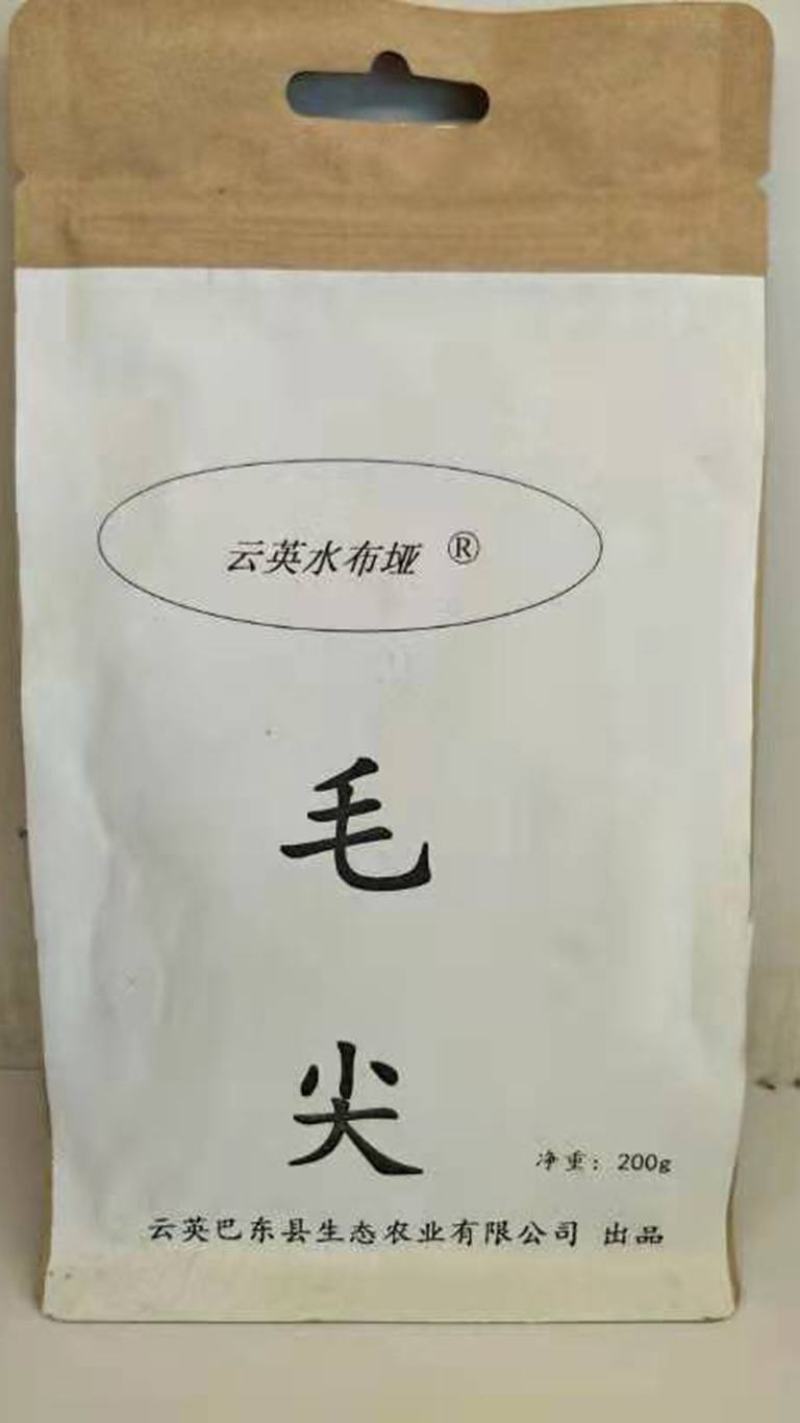 云英水布垭 ®
毛
尖
净重：200g
云英巴东县生态农业有限公司 出品